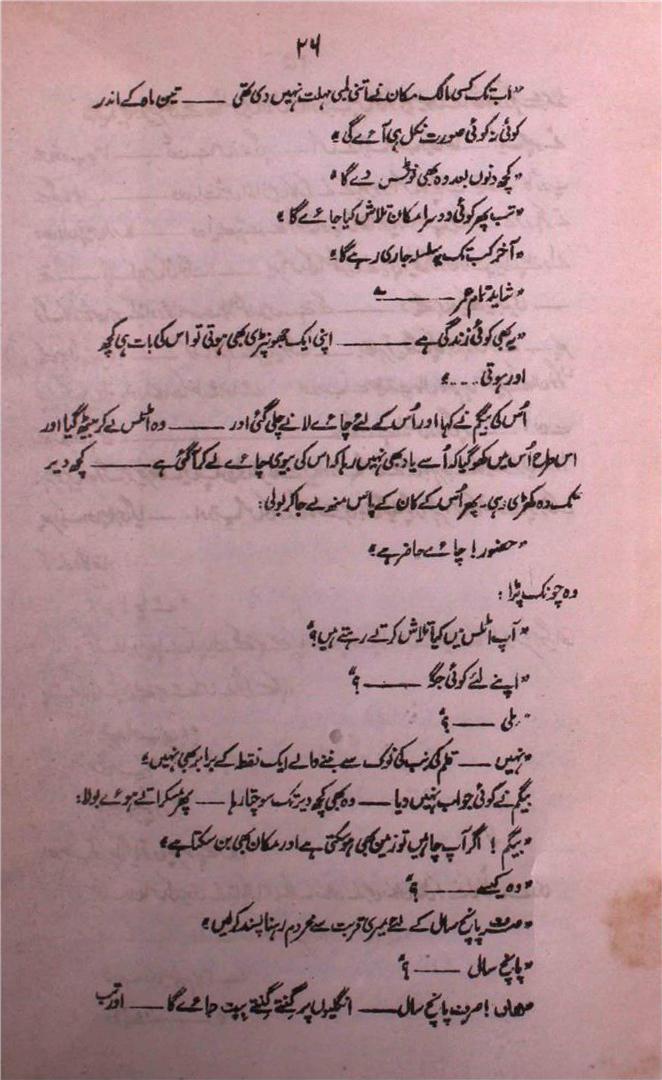 ۲۶
"اب تک کسی مالک مکان نے اتنی لمبی مہلت نہیں دی تھی —— تین ماہ کے اندر
کوئی نہ کوئی صورت نکل ہی آئے گی"
"کچھ دنوں بعد وہ بھی نوٹس دے گا"
"تب پھر کوئی دوسرا مکان تلاش کیا جائے گا"
"آخر کب تک یہ سلسلہ جاری رہے گا"
"شاید تمام عمر ——"
"یہ بھی کوئی زندگی ہے —— اپنی ایک جھونپڑی بھی ہوتی تو اس کی بات ہی کچھ
اور ہوتی ..."
اُس کی بیگم نے کہا اور اُس کے لئے چائے لانے چلی گئی اور —— وہ اٹلس لے کر بیٹھ گیا اور
اس طرح اُس میں کھو گیا کہ اُسے یاد بھی نہیں رہا کہ اس کی بیوی چائے لے کر آ گئی ہے —— کچھ دیر
تک وہ کھڑی رہی۔ پھر اُس کے کان کے پاس منھ لے جا کر بولی:
"حضور! چائے حاضر ہے"
وہ چونک پڑا:
"آپ اٹلس میں کیا تلاش کرتے رہتے ہیں؟"
"اپنے لئے کوئی جگہ ——؟"
"ملی ——؟"
"نہیں —— قلم کی نب کی نوک سے بننے والے ایک نقطہ کے برابر بھی نہیں"
بیگم نے کوئی جواب نہیں دیا —— وہ بھی کچھ دیر تک سوچتا رہا —— پھر مسکراتے ہوئے بولا:
"بیگم! اگر آپ چاہیں تو زمین بھی ہو سکتی ہے اور مکان بھی بن سکتا ہے"
"وہ کیسے ——؟"
"صرف پانچ سال کے لئے میری قربت سے محروم رہنا پسند کر لیں"
"پانچ سال ——؟"
"ہاں! صرف پانچ سال —— انگلیوں پر گنتے گنتے بیت جائے گا —— اور تب